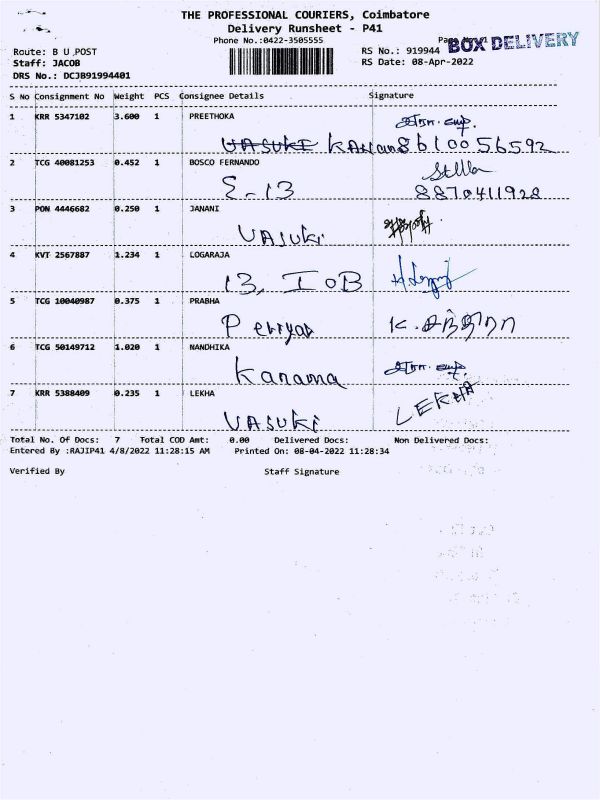 THE PROFESSIONAL COURIERS, Coimbatore
Delivery Runsheet - P41
Phone No.:0422-3505555
BOX DELIVERY
Route: B U POST
RS No.: 919944
Staff: JACOB
RS Date: 08-Apr-2022
DRS No.: DCJB91994401
S No Consignment No Weight PCS Consignee Details Signature
1 KRR 5347102 3.600 1 PREETHOKA
VASUKI 8610056592
2 TCG 40081253 0.452 1 BOSCO FERNANDO Stella
E-13 8870411928
3 PON 4446682 0.250 1 JANANI
VASUKI
4 KVT 2567887 1.234 1 LOGARAJA
13, IOB
5 TCG 10040987 0.375 1 PRABHA
Periyar K.
6 TCG 50149712 1.020 1 NANDHIKA
Kanama
7 KRR 5388409 0.235 1 LEKHA LEKHA
VASUKI
Total No. Of Docs: 7 Total COD Amt: 0.00 Delivered Docs: Non Delivered Docs:
Entered By :RAJIP41 4/8/2022 11:28:15 AM Printed On: 08-04-2022 11:28:34
Verified By Staff Signature